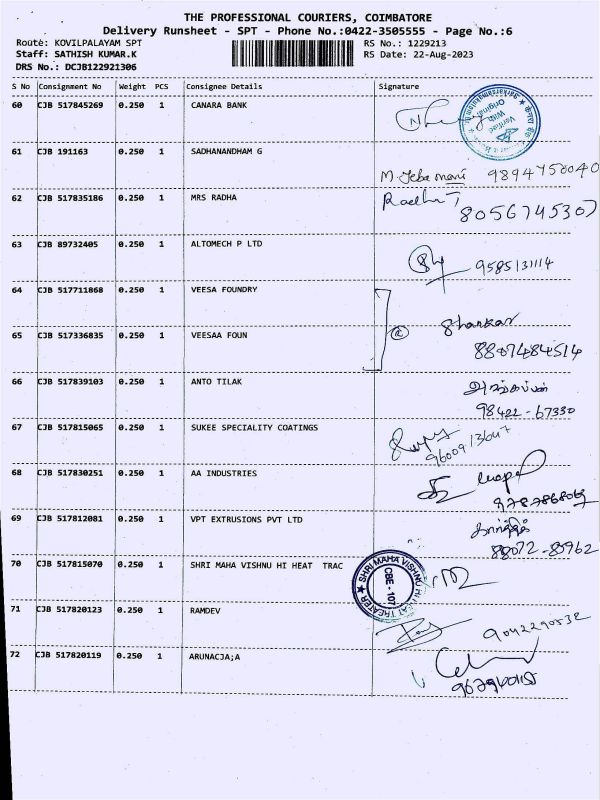 THE PROFESSIONAL COURIERS, COIMBATORE
Delivery Runsheet - SPT - Phone No.:0422-3505555 - Page No.:6
Route: KOVILPALAYAM SPT RS No.: 1229213
Staff: SATHISH KUMAR.K RS Date: 22-Aug-2023
DRS No.: DCJB122921306
S No Consignment No Weight PCS Consignee Details Signature
60 CJB 517845269 0.250 1 CANARA BANK
Verified With Original
61 CJB 191163 0.250 1 SADHANANDHAM G
M. Jeba mani 9894758040
62 CJB 517835186 0.250 1 MRS RADHA Radha T
8056745307
63 CJB 89732405 0.250 1 ALTOMECH P LTD
9585131114
64 CJB 517711868 0.250 1 VEESA FOUNDRY
Shankar
65 CJB 517336835 0.250 1 VEESAA FOUN
8807484514
66 CJB 517839103 0.250 1 ANTO TILAK
98422-67330
67 CJB 517815065 0.250 1 SUKEE SPECIALITY COATINGS
68 CJB 517830251 0.250 1 AA INDUSTRIES
69 CJB 517812081 0.250 1 VPT EXTRUSIONS PVT LTD
கார்த்திக்
88072-85962
70 CJB 517815070 0.250 1 SHRI MAHA VISHNU HI HEAT TRAC
SHRI MAHA VISHNU HI HEAT TREATER
CBE - 107
71 CJB 517820123 0.250 1 RAMDEV
9042290532
72 CJB 517820119 0.250 1 ARUNACJA;A